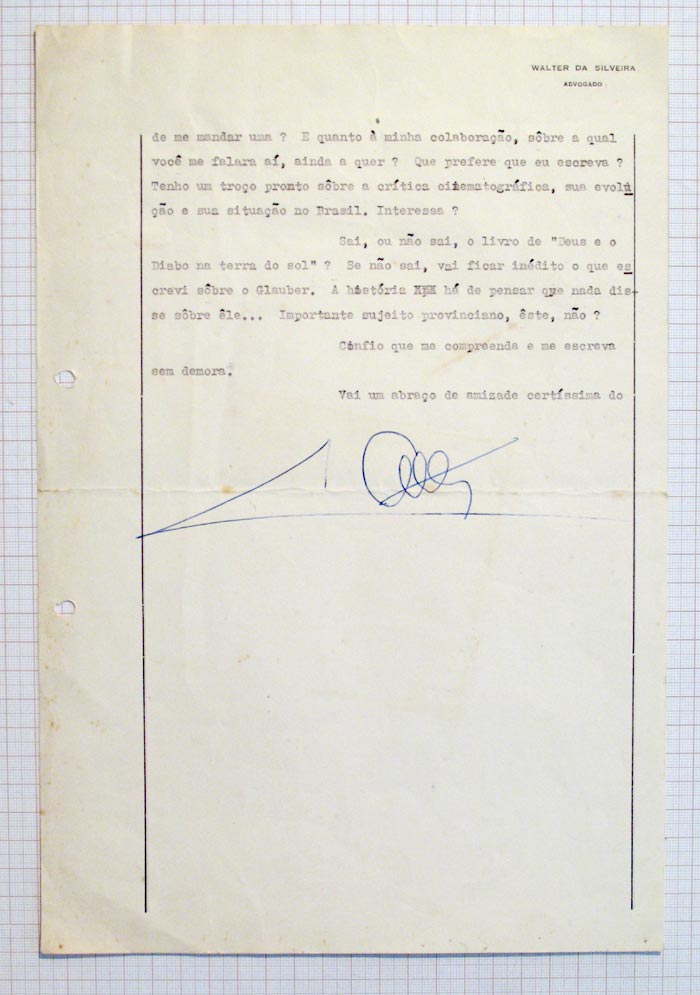 WALTER DA SILVEIRA
ADVOGADO
de me mandar uma ? E quanto à minha colaboração, sôbre a qual
você me falara aí, ainda a quer ? Que prefere que eu escreva ?
Tenho um troço pronto sôbre a crítica cinematográfica, sua evolu
ção e sua situação no Brasil. Interessa ?
Sai, ou não sai, o livro de "Deus e o
Diabo na terra do sol" ? Se não sai, vai ficar inédito o que es
crevi sôbre o Glauber. A história há de pensar que nada dis-
se sôbre êle... Importante sujeito provinciano, êste, não ?
Confio que me compreenda e me escreva
sem demora.
Vai um abraço de amizade certíssima do